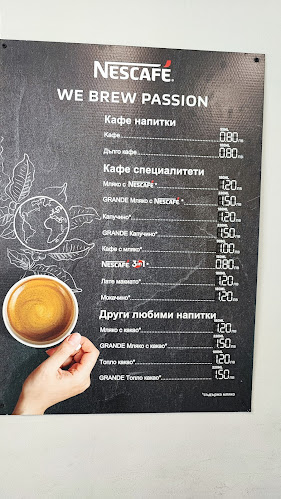 NESCAFÉ.
WE BREW PASSION
Кафе напитки
Кафе 0.80
Дълго кафе 0.80
Кафе специалитети
Мляко с NESCAFÉ* 1.20
GRANDE Мляко с NESCAFÉ* 1.50
Капучино* 1.20
GRANDE Капучино* 1.50
Кафе с мляко* 1.00
NESCAFÉ 3в1* 0.80
Лате макиато* 1.20
Мокачино* 1.20
Други любими напитки
Мляко с какао* 1.20
GRANDE Мляко с какао* 1.50
Топло какао* 1.20
GRANDE Топло какао* 1.50
*съдържа мляко